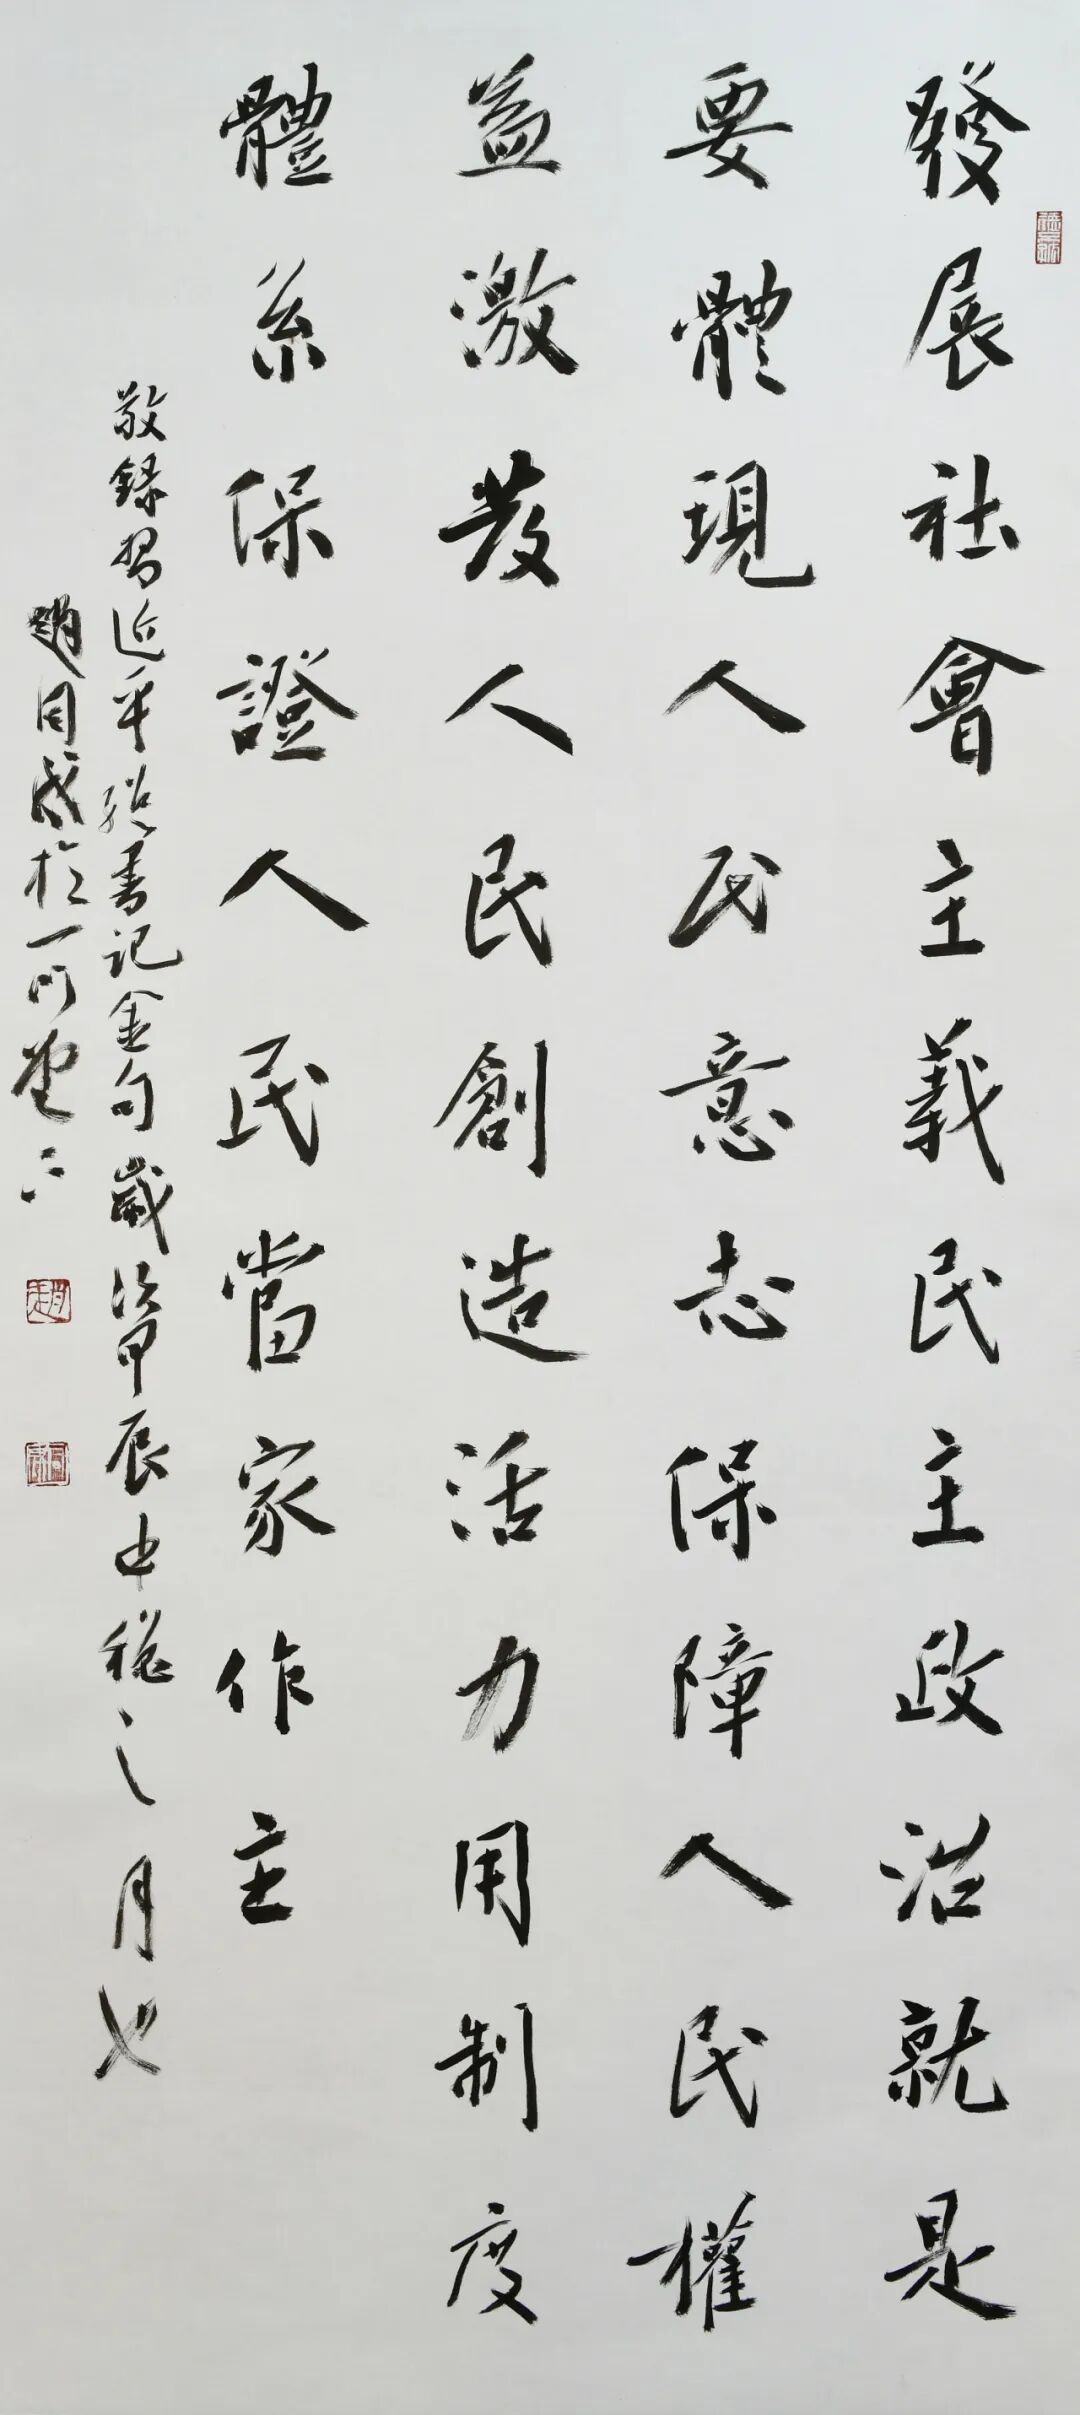 發展社會主義民主政治就是
要體現人民意志保障人民權
益激發人民創造活力用制度
體系保證人民當家作主
敬錄習近平總書記金句歲次甲辰中秋之月也
趙同成於一門堂下